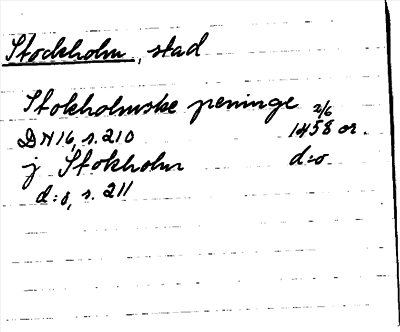 Stockholm, stad
Stokholmske peninge 2/6
DN 16, s. 210 1458 or.
j Stokholm d:o
d:o, s. 211